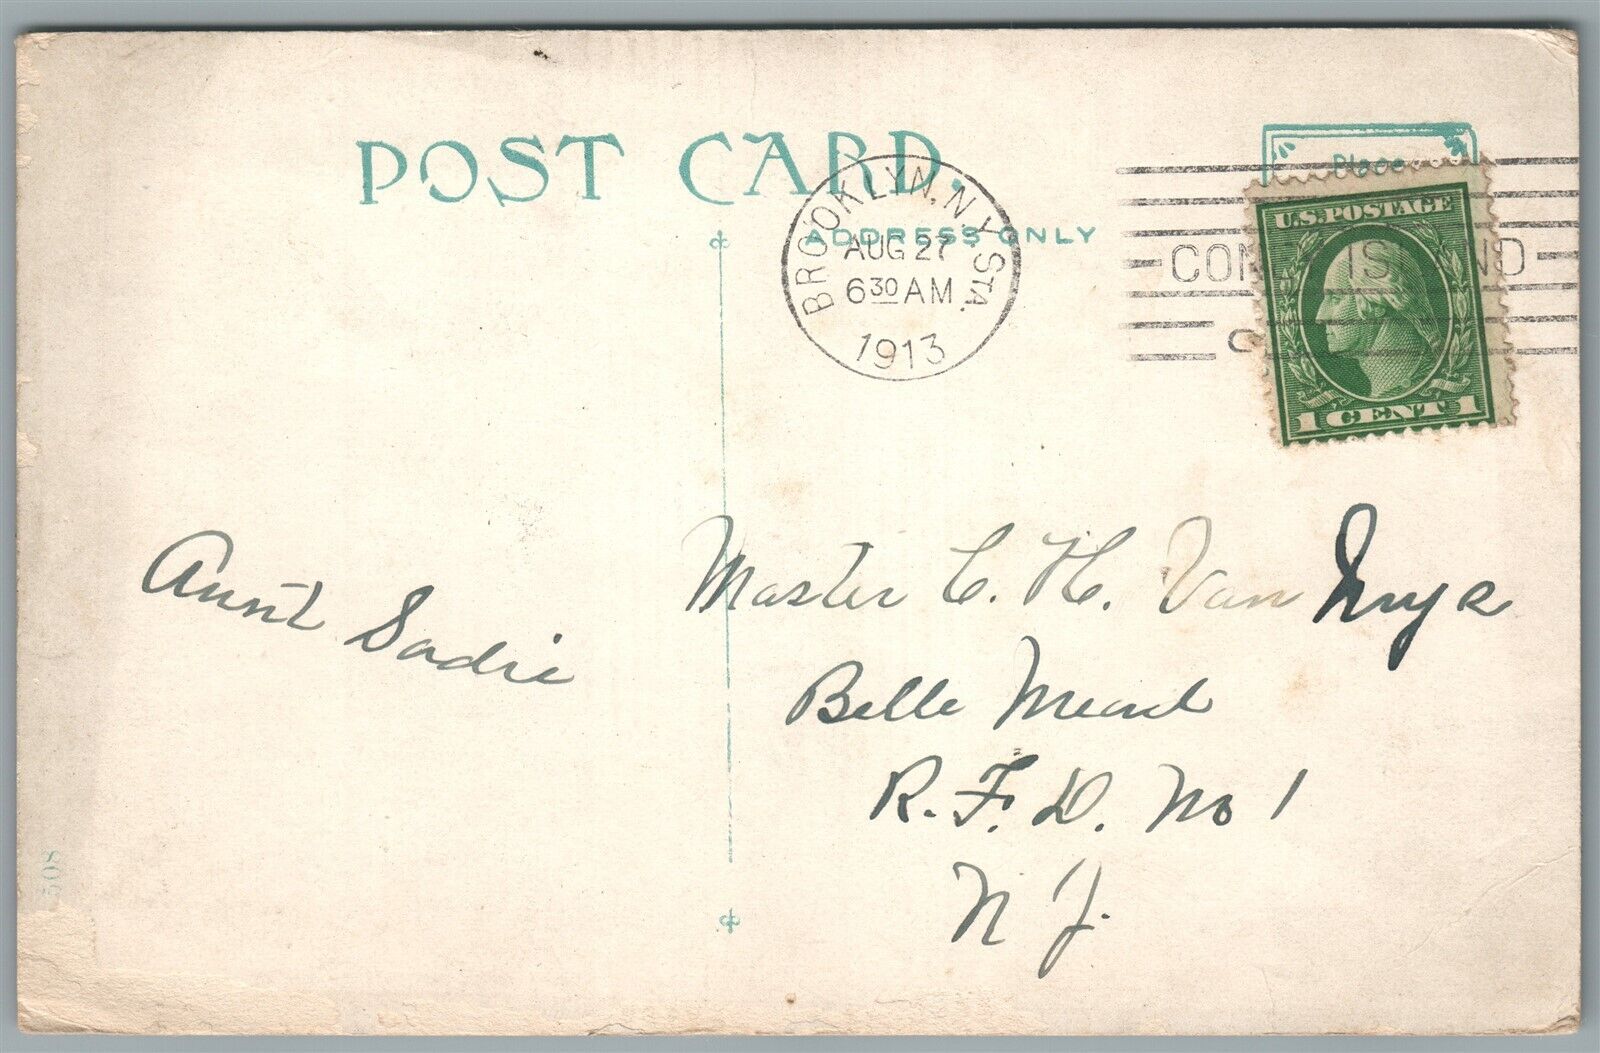 POST CARD.
ADDRESS ONLY
Place
BROOKLYN, N.Y. STA.
AUG 27
6 30 AM
1913
CONEY ISLAND
U.S. POSTAGE
1 CENT 1
Aunt Sadie
Master C. H. Van Nuys
Belle Mead
R. F. D. No 1
N J.
508